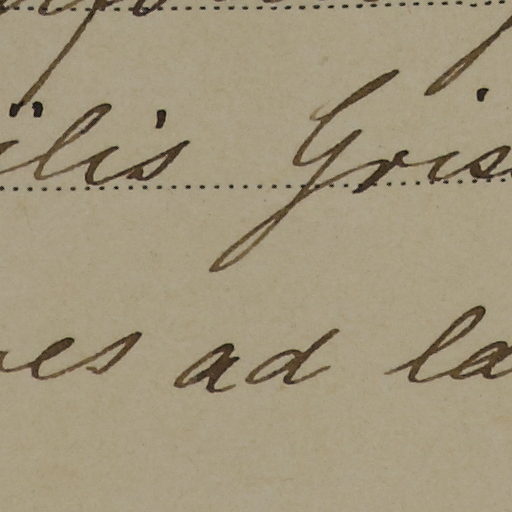 ilis Gris
es ad la